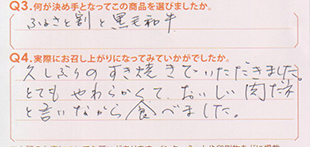 Q3.何が決め手となってこの商品を選びましたか。
ふるさと割と黒毛和牛
Q4.実際にお召し上がりになってみていかがでしたか。
久しぶりのすき焼きでいただきました。
とてもやわらかくて、おいしい肉だネ
と言いながら食べました。